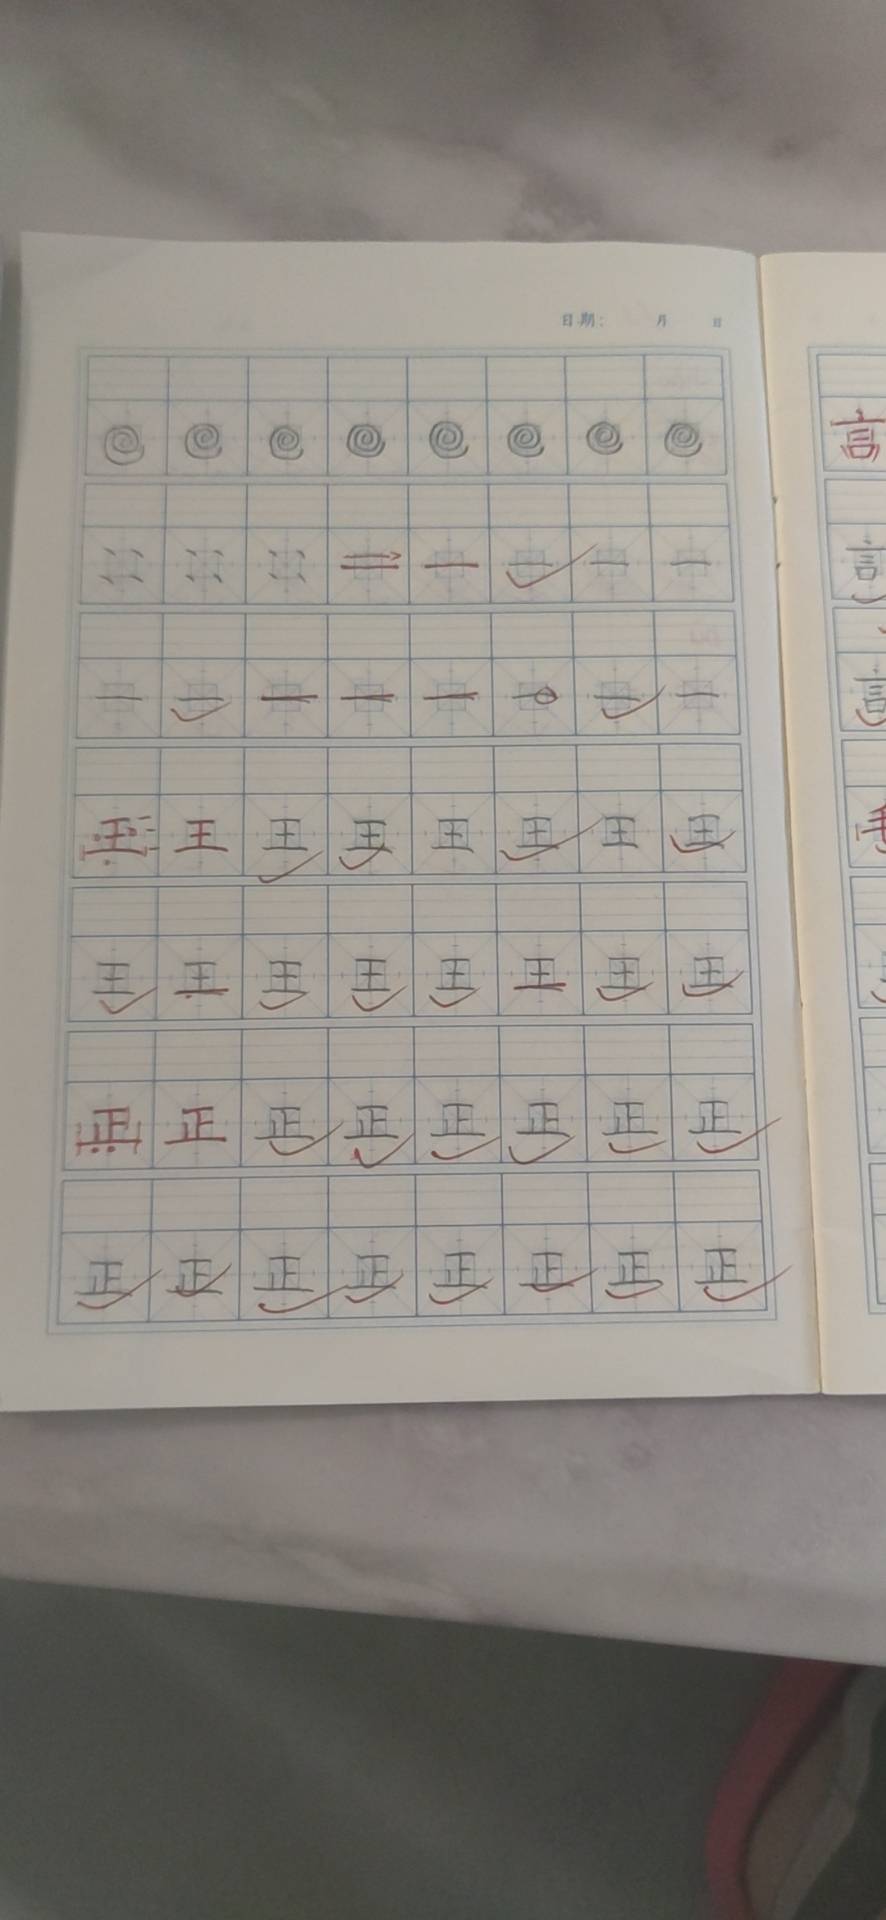 日期: 月 日
一 一 一 一
一 一 一 一 一 一 一 一
王 王 王 王 王 王 王 王
王 王 王 王 王 王 王 王
正 正 正 正 正 正 正 正
正 正 正 正 正 正 正 正
言
言
言